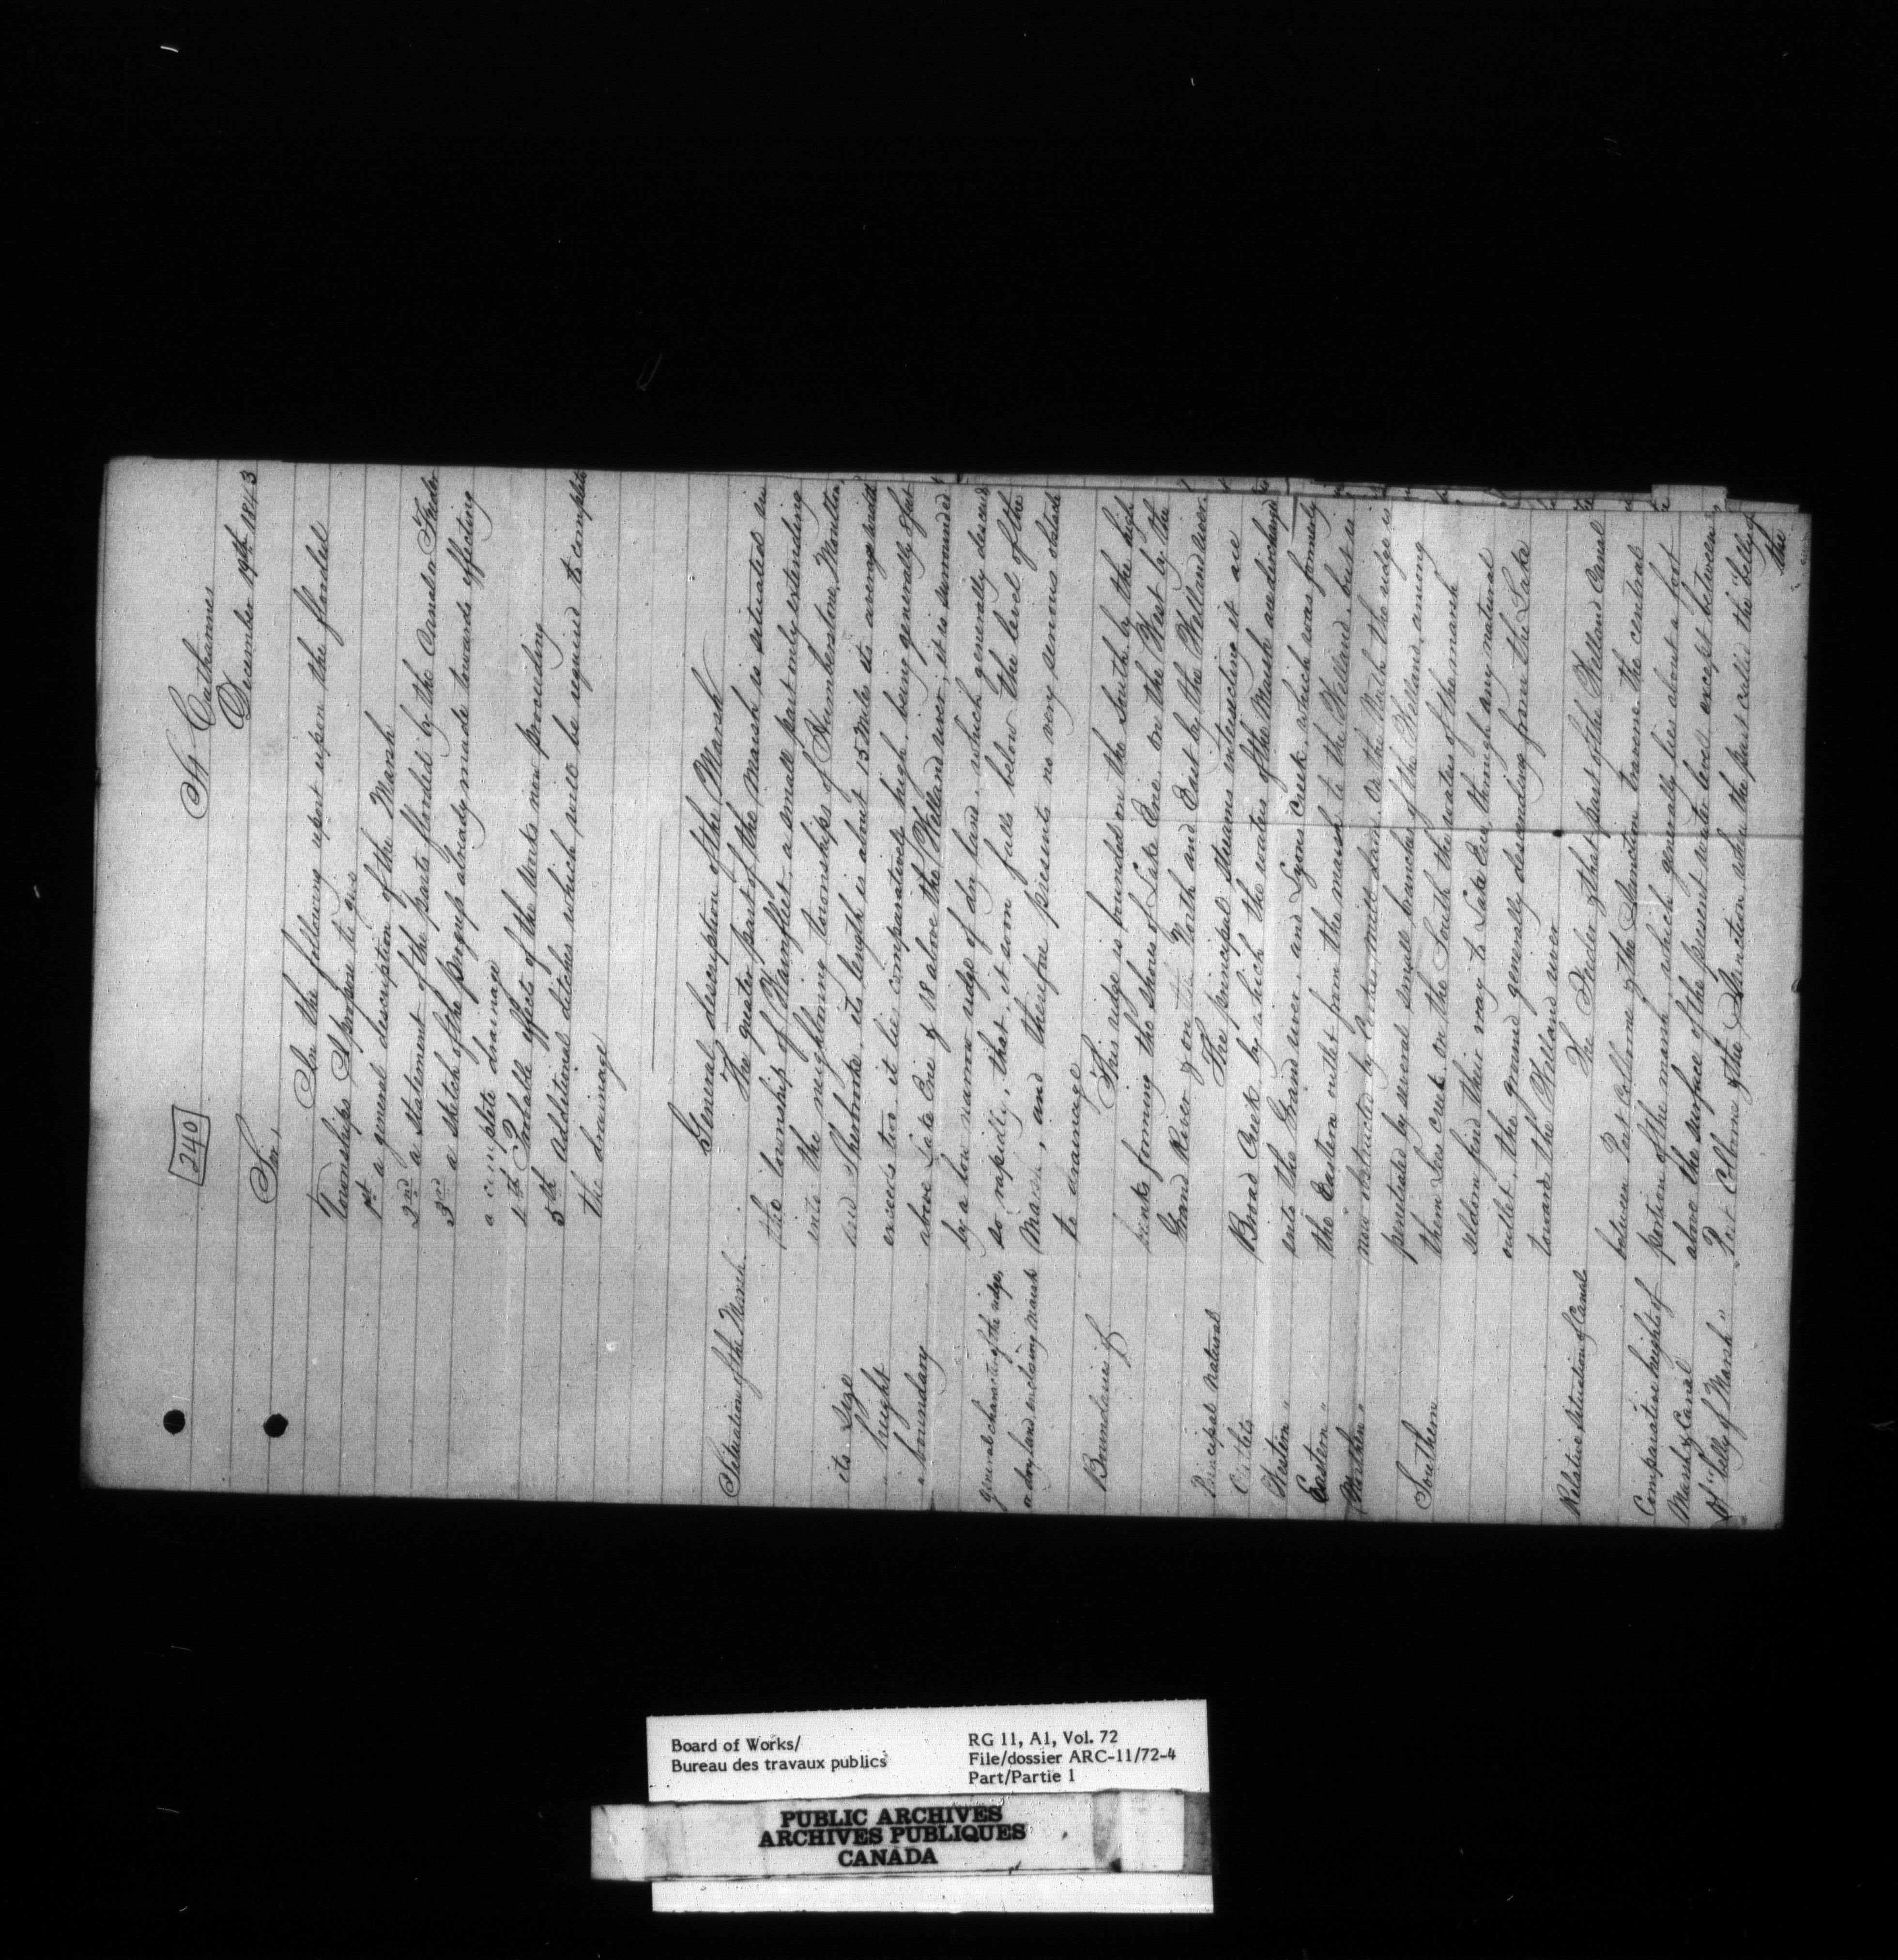 240
St Catharines
December 19th 1843
Sir,
In the following report upon the flooded
Townships I propose to give
1st a general description of the Marsh
2nd a statement of the parts flooded by the Canal or Feeder
3rd a sketch of the progress already made towards effecting
a complete drainage
4th Probable effects of the works now proceeding
5th Additional ditches which will be required to complete
the drainage
General description of the Marsh
Situation of the Marsh.
The greater part of the Marsh is situated in
the township of Wainfleet, a small part only extending
into the neighbouring townships of Humberstone, Moulton,
its size
and Sherbrooke, its length is about 15 miles its average width
" height
exceeds two. it lies comparatively high, being generally 8 feet
" boundary
above Lake Erie & 18 above the Welland river; it is surrounded
by a low narrow ridge of dry land, which generally descends
general character of the ridge,
so rapidly, that it soon falls below the level of the
a dry land enclosing marsh
Marsh, and therefore presents no very serious obstacle
to drainage
Boundaries of
This ridge is bounded on the South by the high
banks forming the shores of Lake Erie on the West by the
Grand River & on the North and East by the Welland river.
Principal natural
The principal streams intersecting it are
Outlets
Broad Creek by which the waters of the Marsh are discharged
Western "
into the Grand river, and Lyons Creek which was formerly
Eastern "
the Eastern outlet from the marsh to the Welland, but is
Northern "
now obstructed by mill dam. On the North the ridge is
penetrated by several small branches of the Welland, among
Southern
them creek. on the South the waters of the marsh
seldom find their way to Lake Erie through any natural
outlet, the ground generally descending from the Lake
toward the Welland river
Relative situation of Canal
The Feeder & that part of the Welland Canal
between Port Colborne & the Junction traverse the central
Comparative height of
portion of the marsh which generally lies about a foot
Marsh & Canal
above the surface of the present water level except between
Of "belly of Marsh"
Port Colborne & the Junction when the part called the "belly of
the
Board of Works/
Bureau des travaux publics
RG 11, A1, Vol. 72
File/dossier ARC-11/72-4
Part/Partie 1
PUBLIC ARCHIVES
ARCHIVES PUBLIQUES
CANADA